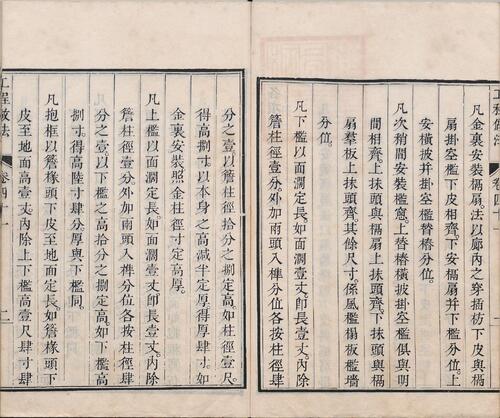 工程做法 卷四十一
凡金裏安裝槅扇。法以廊內之穿插枋下皮與槅
扇掛空檻下皮相齊。下安槅扇并下檻分位。上
安橫披并掛空檻替樁分位。
凡次稍間安裝檻窻。上替樁橫披掛空檻俱與明
間相齊。上抹頭與槅扇上抹頭齊。下抹頭與槅
扇羣板上抹頭齊。其餘尺寸係風檻榻板檻墻
分位。
凡下檻以面濶定長。如面濶壹丈。卽長壹丈。內除
簷柱徑壹分。外加兩頭入榫分位。各按柱徑肆
分之壹。以簷柱徑拾分之捌定高。如柱徑壹尺。
得高捌寸。以本身之高減半定厚。得厚肆寸。如
金裏安裝。照金柱徑寸定高厚。
凡上檻以面濶定長。如面濶壹丈。卽長壹丈。內除
簷柱徑壹分。外加兩頭入榫分位。各按柱徑肆
分之壹。以下檻之高拾分之捌定高。如下檻高
捌寸。得高陸寸肆分。厚與下檻同。
凡抱框以簷椽頭下皮至地面定長。如簷椽頭下
皮至地面高壹丈。內除上下檻高壹尺肆寸肆
工程做法 卷四十一 二